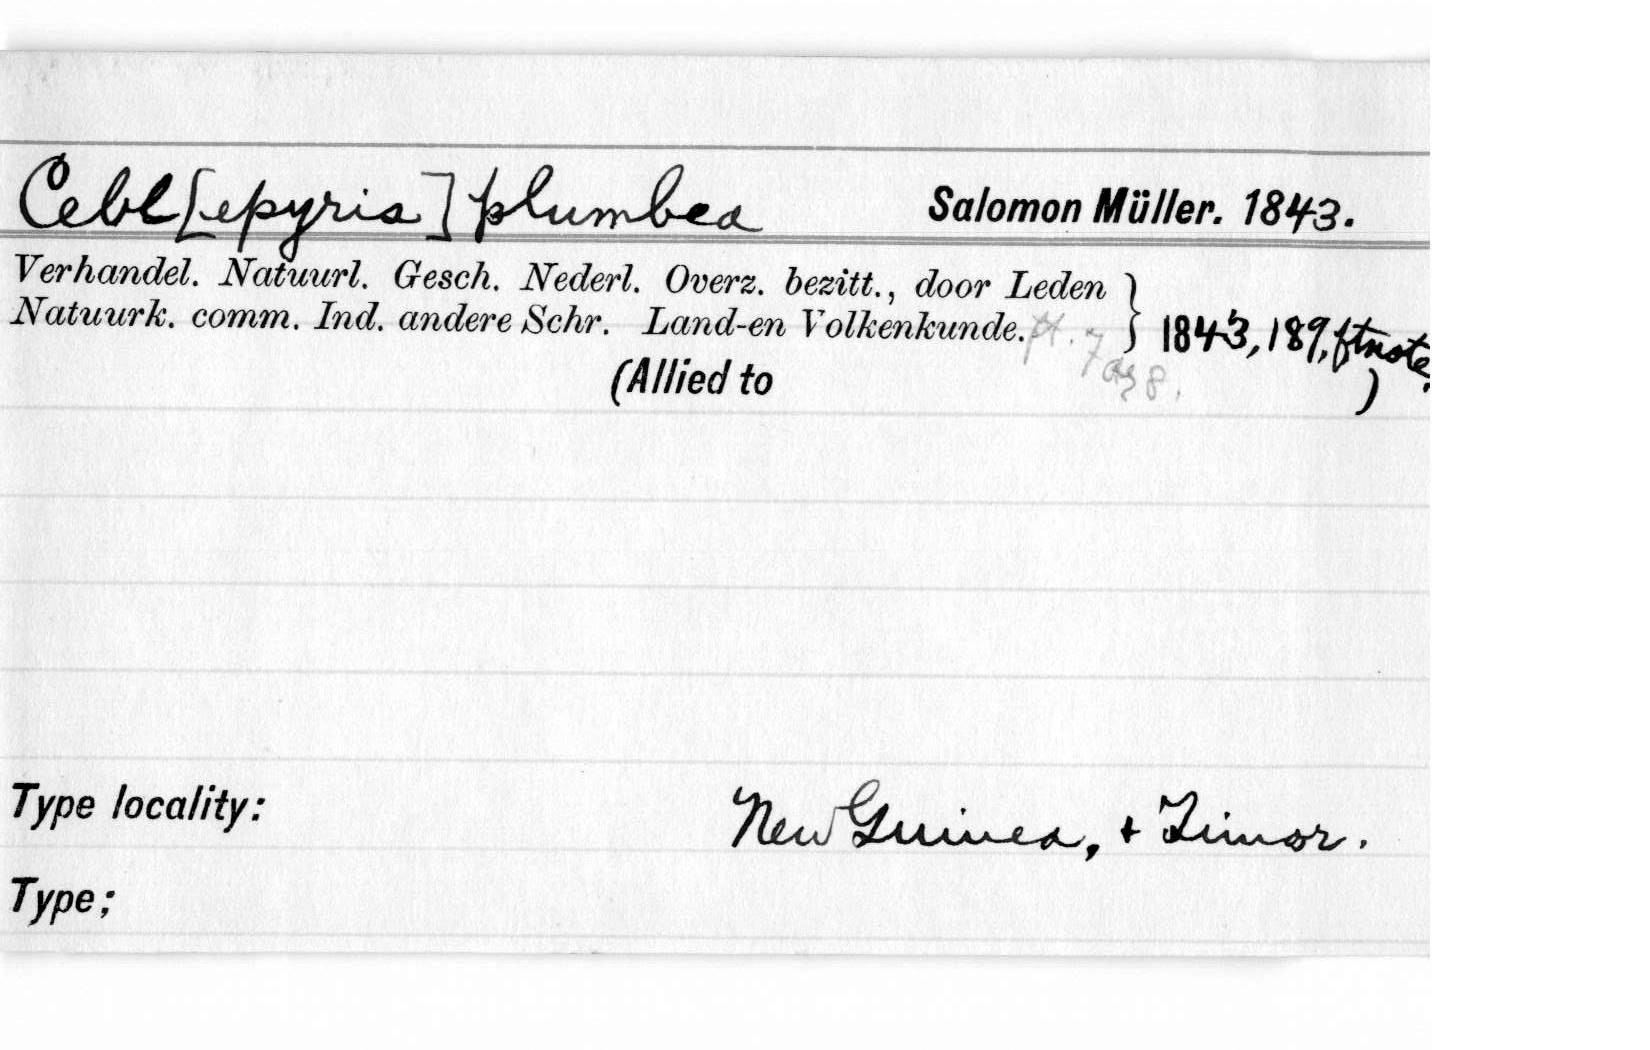 Cebl[epyris] plumbea Salomon Müller. 1843.
Verhandel. Natuurl. Gesch. Nederl. Overz. bezitt., door Leden
Natuurk. comm. Ind. andere Schr. Land-en Volkenkunde. pt. 7 } 1843, 189, ftnote.
or 8.
(Allied to )
Type locality: New Guinea, + Timor.
Type;